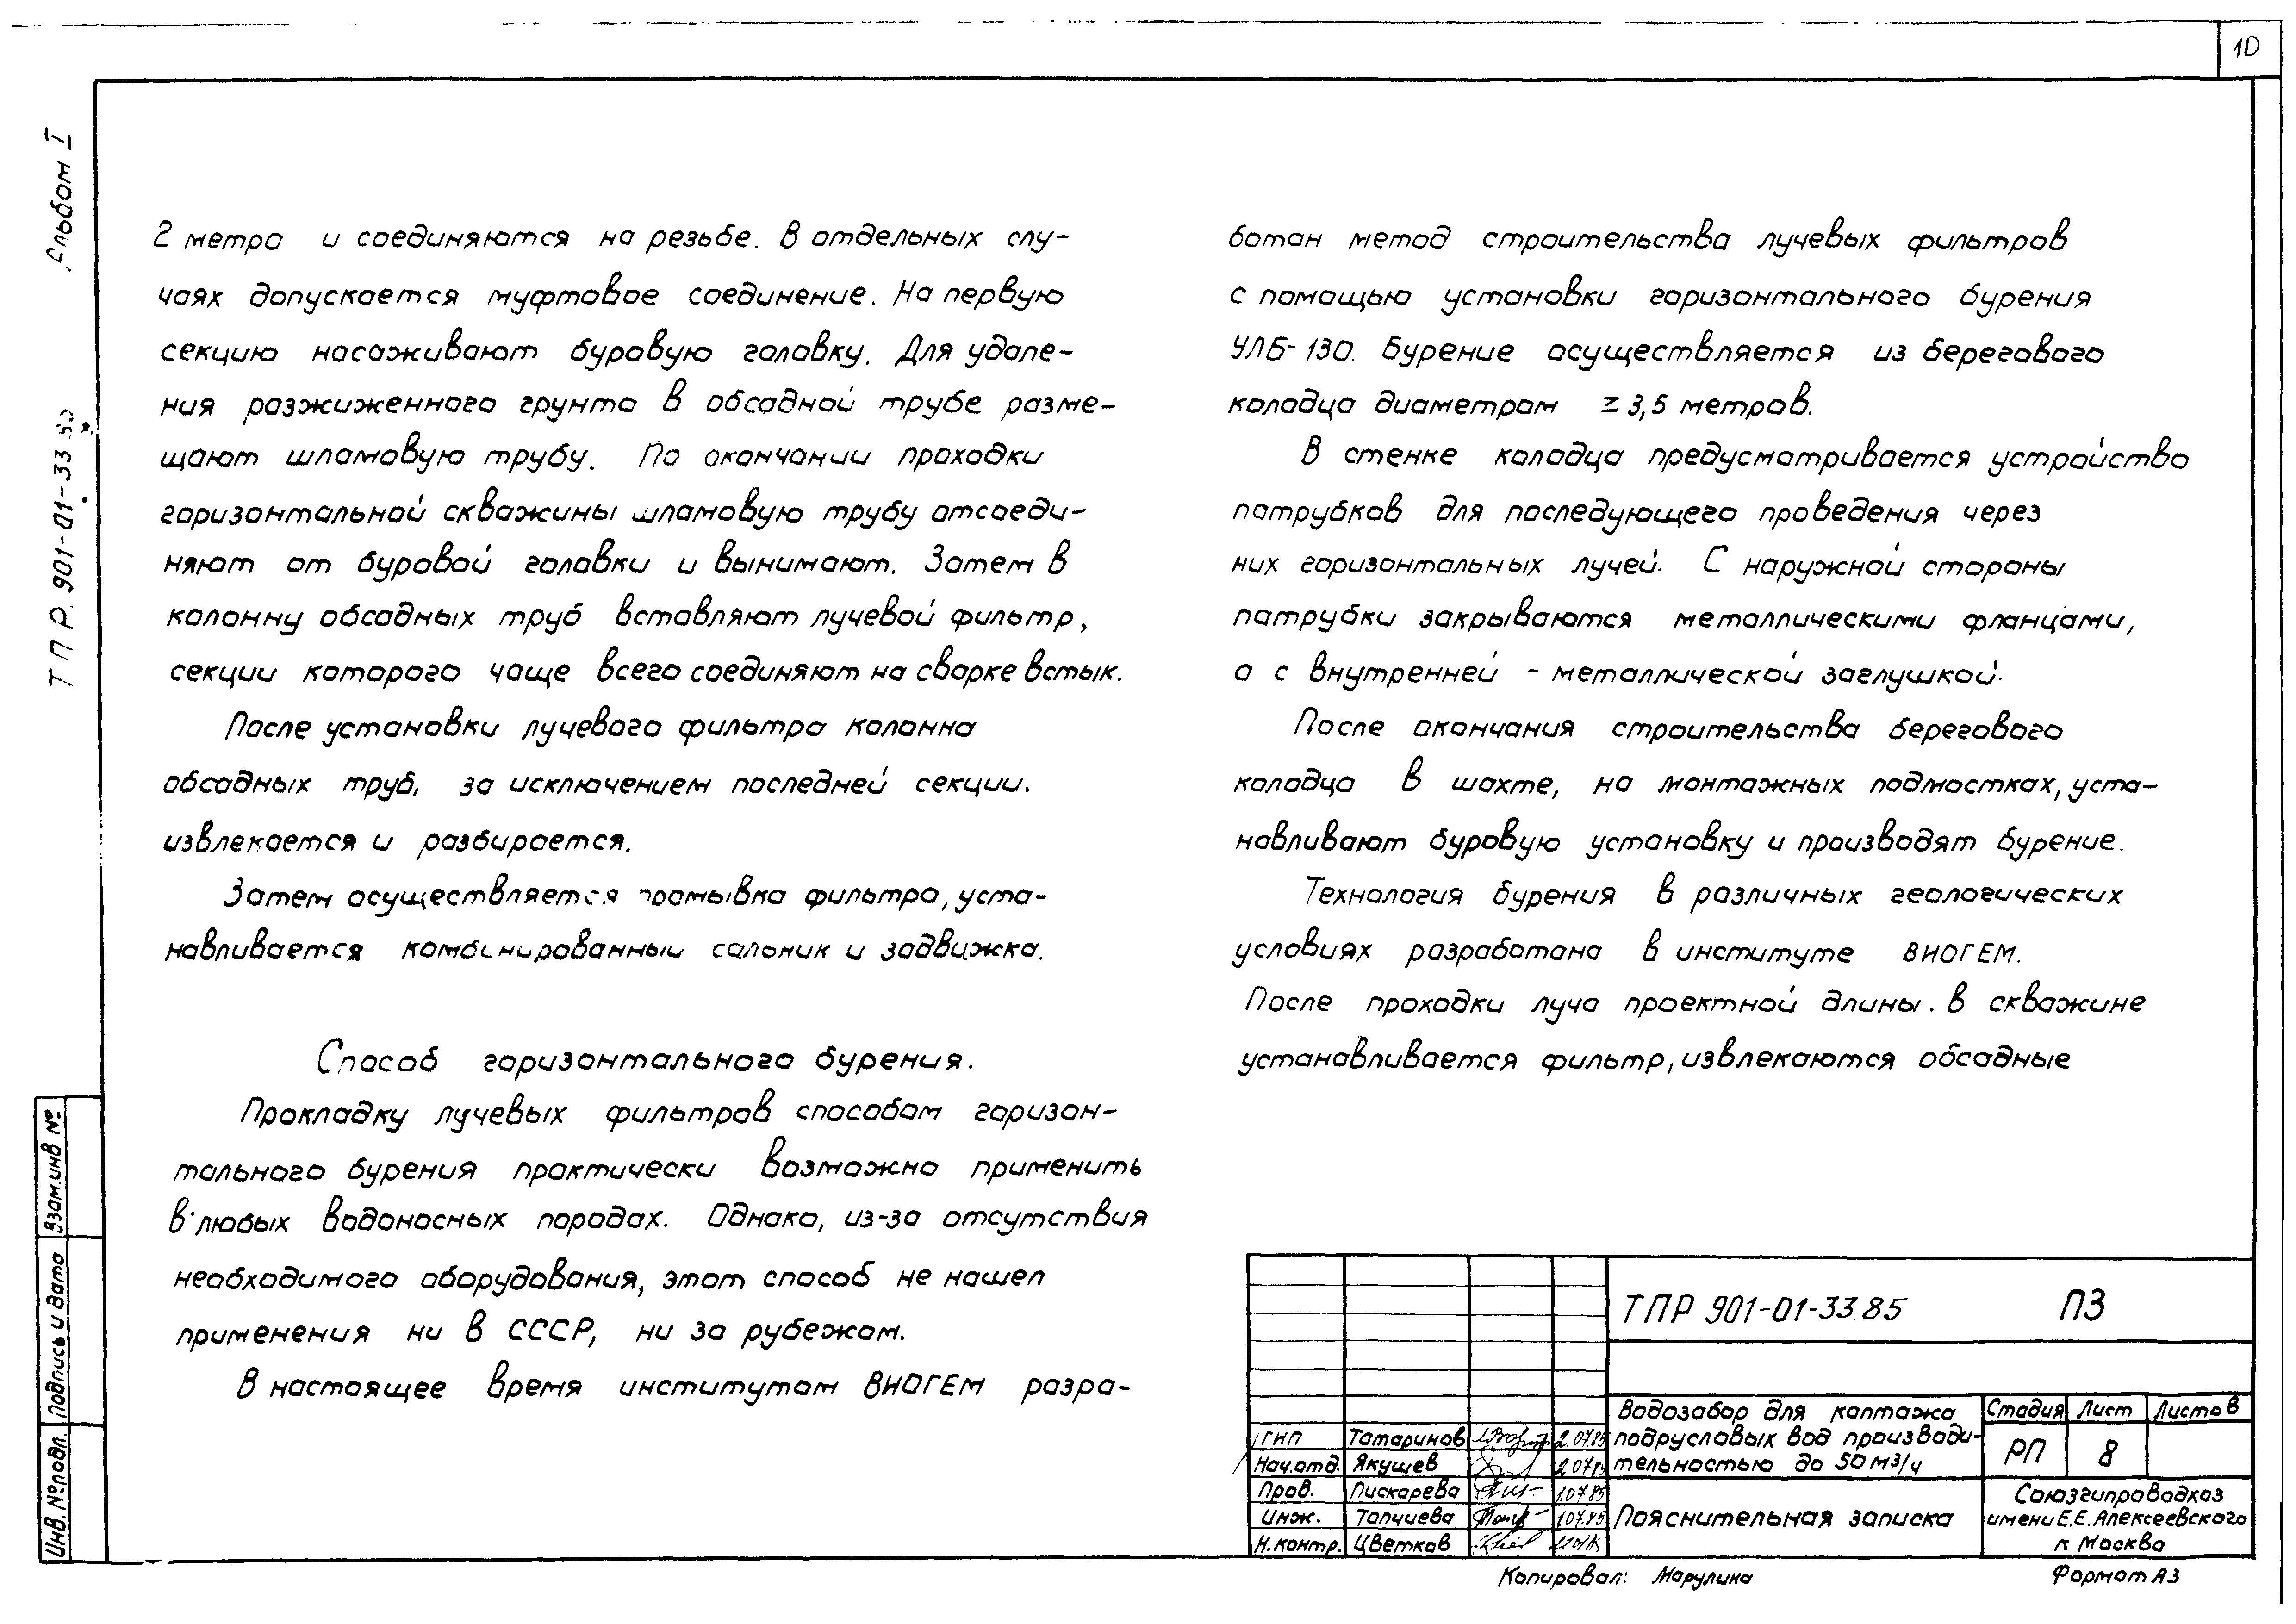 10
Альбом I
ТПР 901-01-33.85
2 метра и соединяются на резьбе. В отдельных слу-
чаях допускается муфтовое соединение. На первую
секцию насаживают буровую головку. Для удале-
ния разжиженного грунта в обсадной трубе разме-
щают шламовую трубу. По окончании проходки
горизонтальной скважины шламовую трубу отсоеди-
няют от буровой головки и вынимают. Затем в
колонну обсадных труб вставляют лучевой фильтр,
секции которого чаще всего соединяют на сварке встык.
После установки лучевого фильтра колонна
обсадных труб, за исключением последней секции.
извлекается и разбирается.
Затем осуществляется промывка фильтра, уста-
навливается комбинированный сальник и задвижка.
Способ горизонтального бурения.
Прокладку лучевых фильтров способом горизон-
тального бурения практически возможно применить
в любых водоносных породах. Однако, из-за отсутствия
необходимого оборудования, этот способ не нашел
применения ни в СССР, ни за рубежом.
В настоящее время институтом ВИОГЕМ разра-
ботан метод строительства лучевых фильтров
с помощью установки горизонтального бурения
УЛБ-130. Бурение осуществляется из берегового
колодца диаметром ≥ 3,5 метров.
В стенке колодца предусматривается устройство
патрубков для последующего проведения через
них горизонтальных лучей. С наружной стороны
патрубки закрываются металлическими фланцами,
а с внутренней - металлической заглушкой.
После окончания строительства берегового
колодца в шахте, на монтажных подмостках, уста-
навливают буровую установку и производят бурение.
Технология бурения в различных геологических
условиях разработана в институте ВИОГЕМ.
После проходки луча проектной длины. в скважине
устанавливается фильтр, извлекаются обсадные
Взам.инв №
Подпись и дата
Инв. № подл.
ТПР 901-01-33.85 ПЗ
Водозабор для каптажа
подрусловых вод производи-
тельностью до 50 м3/ч
Стадия Лист Листов
РП 8
ГИП Татаринов 2.07.85
Нач.отд. Якушев 2.07.85
Пров. Пискарева 1.07.85
Инж. Топчиева 1.07.85
Н.контр. Цветков
Пояснительная записка
Союзгипроводхоз
имени Е.Е. Алексеевского
г. Москва
Копировал: Марулина
Формат А3